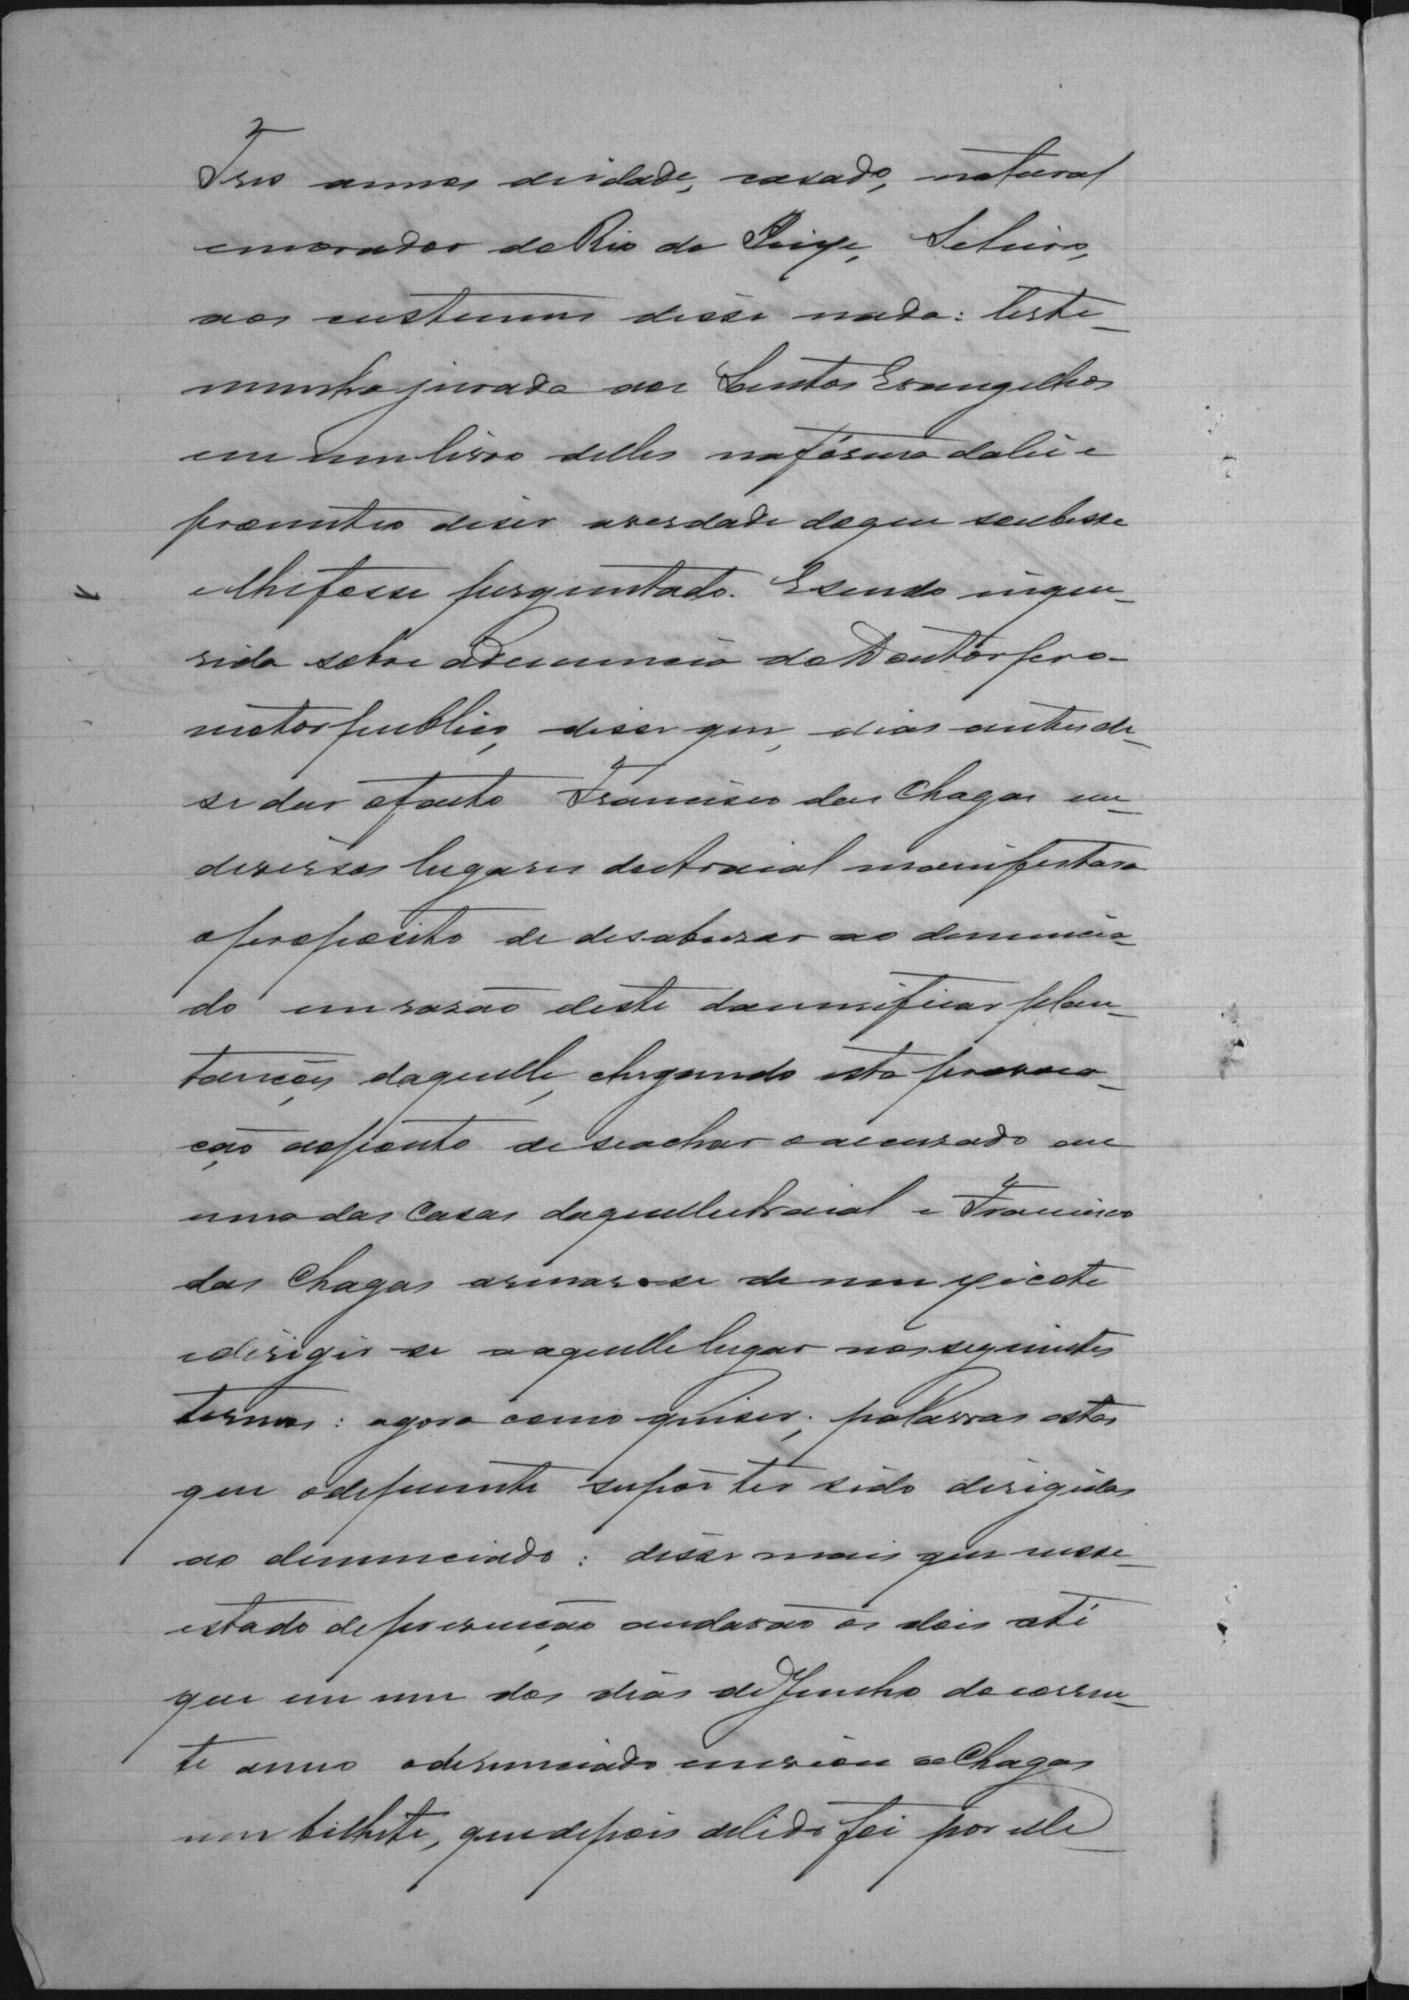 Tres annos deidade, casado, natural
emorador do Rio do Peixe, Seleiro,
aos custumes disse nada: teste-
munha jurada aos Santos Evangelhos
em um livro delles na fórma dalei e
prometteo diser averdade doque soubesse
elhefosse perguntado. Esendo inque-
rido sobre adenuncia do Doutor pro-
motor publico, disse que, dias antes de-
se dar ofacto Francisco das Chagas em-
diversos lugares doarraial manifestava
oproposito de desabusar ao denuncia-
do em rasão deste damnificar plan-
tações daquelle, chegando esta provoca-
ção aoponto de seachar oaccusado em
uma das Casas daquellearraial e Francisco
das Chagas armar-se de um xicote
edirigir-se aaquelle lugar nos seguintes
termos: agora como quiser; palavras estas
que odepoente supõr ter sido dirigidas
ao denunciado: disse mais que nesse-
estado de prevenção andavão os dois até
que em um dos dias de Junho do corren-
te anno odenunciado enviou a Chagas
um bilhete, que depois delido foi por elle